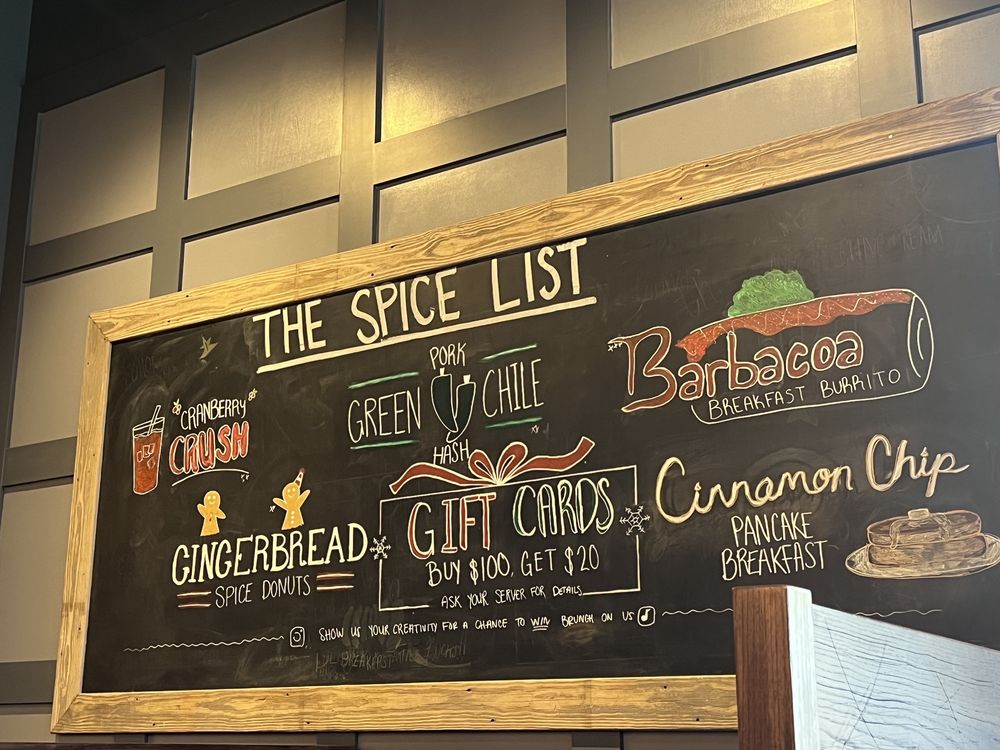 THE SPICE LIST
"CRANBERRY"
CRUSH
PORK
GREEN CHILE
HASH
Barbacoa
BREAKFAST BURRITO
GINGERBREAD
SPICE DONUTS
GIFT CARDS
BUY $100, GET $20
ASK YOUR SERVER FOR DETAILS
Cinnamon Chip
PANCAKE
BREAKFAST
SHOW US YOUR CREATIVITY FOR A CHANCE TO WIN BRUNCH ON US